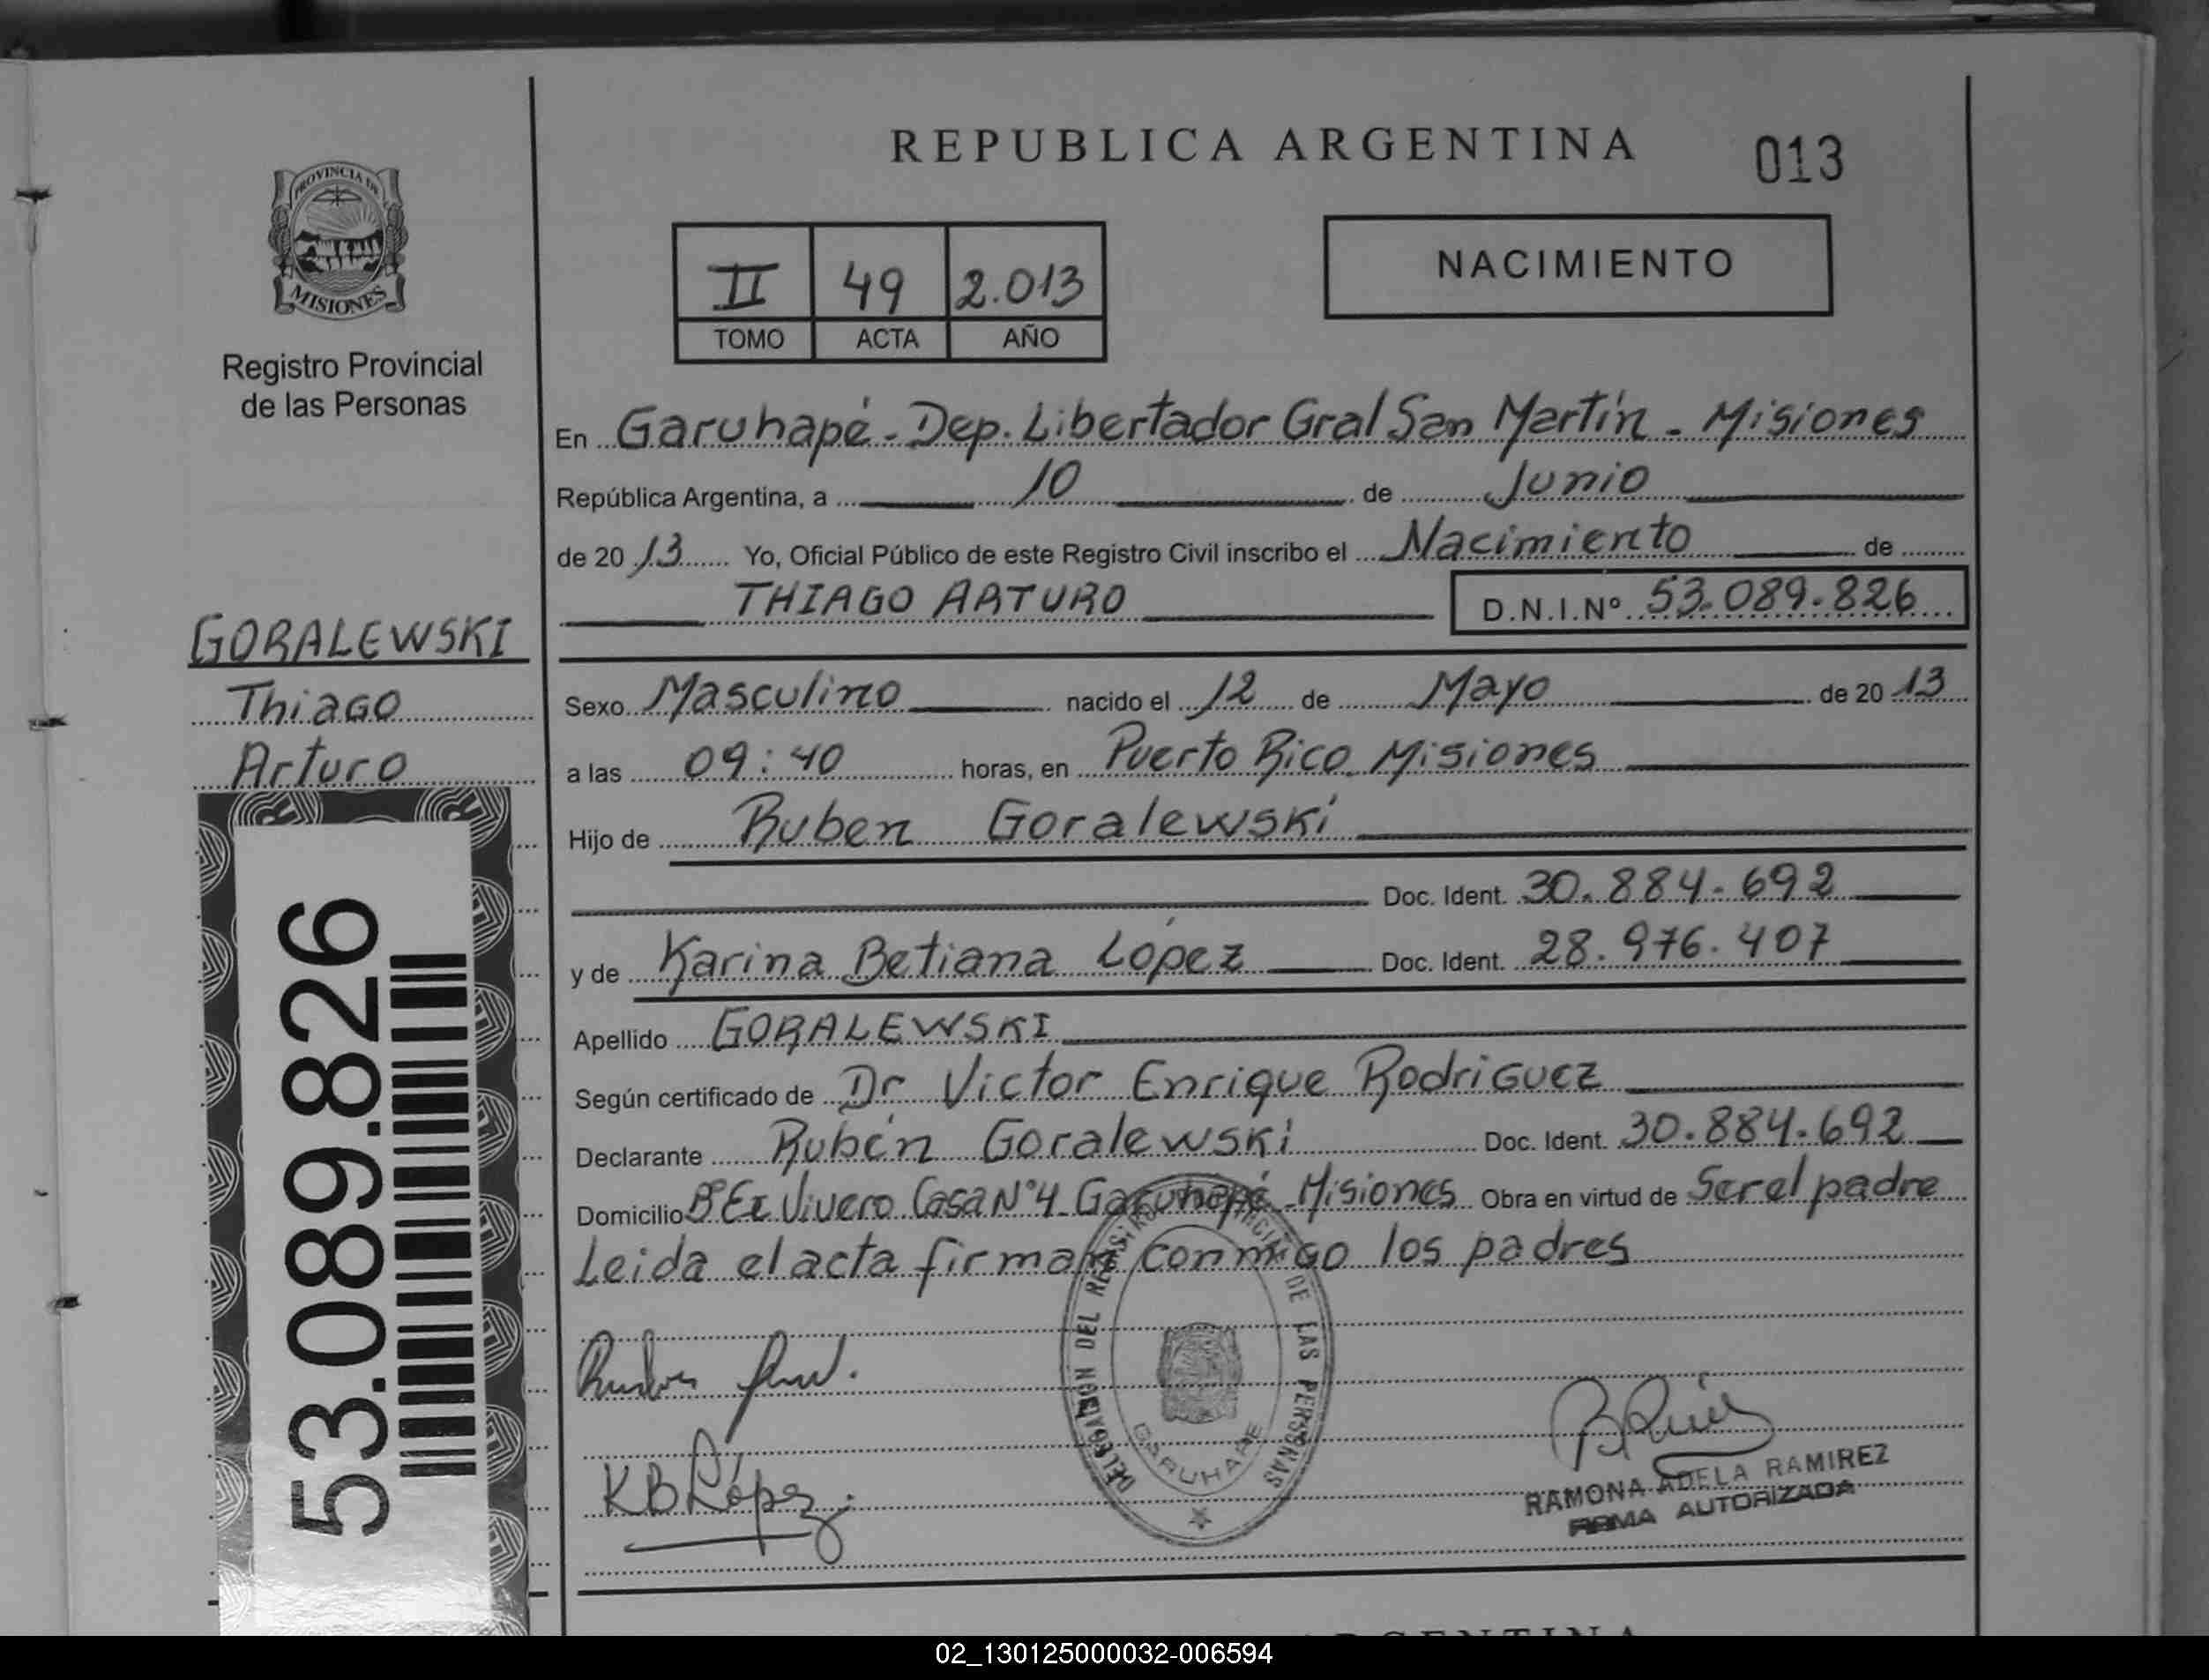 REPUBLICA ARGENTINA
013
PROVINCIA DE
MISIONES
Registro Provincial
de las Personas
II 49 2.013
TOMO ACTA AÑO
NACIMIENTO
En Garuhapé - Dep. Libertador Gral San Martín - Misiones
República Argentina, a 10 de Junio
de 20 13 Yo, Oficial Público de este Registro Civil inscribo el Nacimiento de
THIAGO ARTURO D.N.I.Nº 53.089.826
GORALEWSKI
Thiago
Arturo
Sexo Masculino nacido el 12 de Mayo de 20 13
a las 09:40 horas, en Puerto Rico Misiones
Hijo de Ruben Goralewski
Doc. Ident. 30.884.692
y de Karina Betiana López Doc. Ident. 28.976.407
Apellido GORALEWSKI
Según certificado de Dr Victor Enrique Rodriguez
Declarante Rubén Goralewski Doc. Ident. 30.884.692
Domicilio Bº El Vivero Casa Nº4 Garuhapé - Misiones Obra en virtud de Ser el padre
Leida el acta firman conmigo los padres
53.089.826
DELEGACION DEL REGISTRO PROVINCIAL DE LAS PERSONAS
GARUHAPE
KB López
RAMONA ADELA RAMIREZ
FIRMA AUTORIZADA
ARGENTINA
02_130125000032-006594